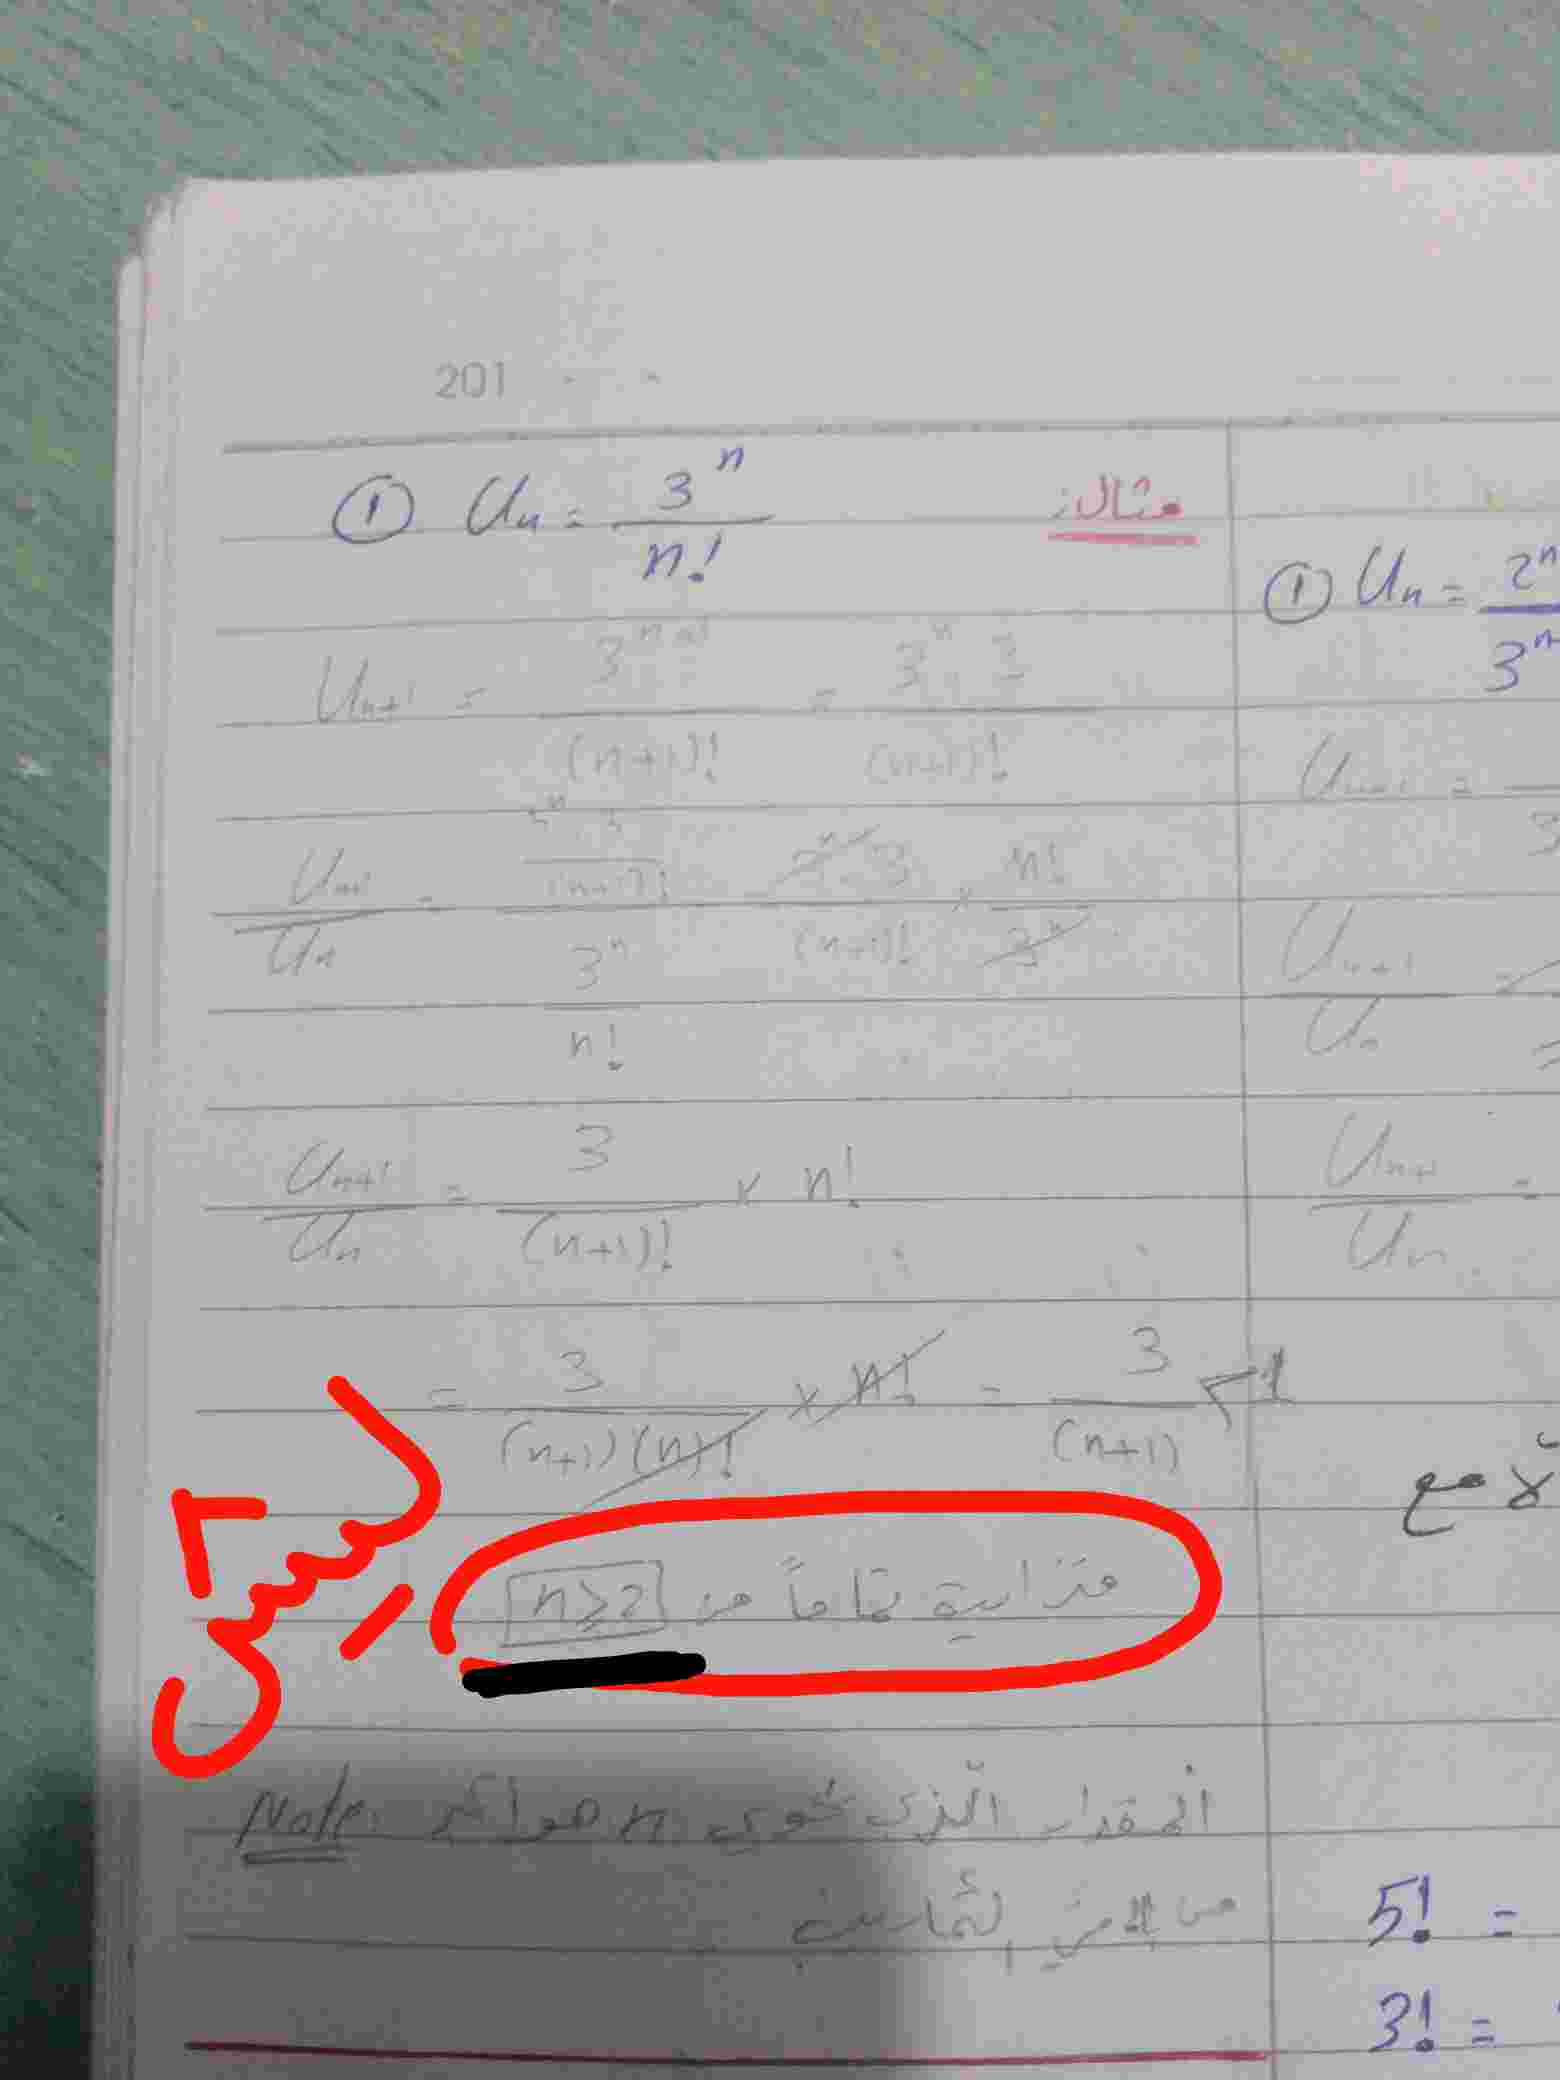 201
① Uₙ = 3ⁿ / n!
مثال:
Uₙ₊₁ = 3ⁿ⁺¹ / (n+1)! = 3ⁿ · 3 / (n+1)!
Uₙ₊₁ / Uₙ = (3ⁿ · 3 / (n+1)!) / (3ⁿ / n!) = 3ⁿ · 3 / (n+1)! × n! / 3ⁿ
Uₙ₊₁ / Uₙ = 3 / (n+1)! × n!
= 3 / (n+1)(n)! × n! = 3 / (n+1) < 1
متزايدة تماماً من n≥2
ليش
Note: المقدار الّذي يحوي n هو أكبر
من
① Uₙ = 2ⁿ / 3ⁿ
Uₙ₊₁ =
3
Uₙ₊₁ / Uₙ =
Uₙ₊₁ / Uₙ =
مع
5! =
3! =